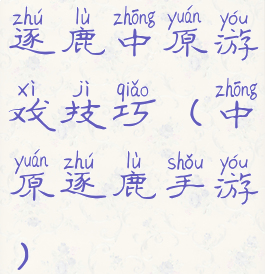 zhú lù zhōng yuán yóu
逐鹿中原游
xì jì qiǎo zhōng
戏技巧（中
yuán zhú lù shǒu yóu
原逐鹿手游
）